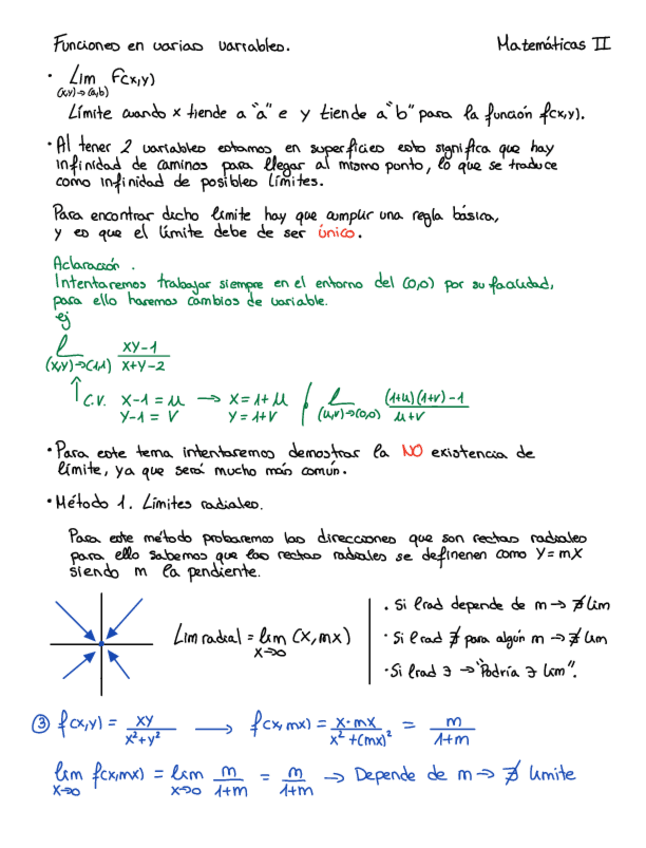 Funciones en varias variables. Matemáticas II
· Lim f(x,y)
(x,y)→(a,b)
Límite cuando x tiende a "a" e y tiende a "b" para la función f(x,y).
· Al tener 2 variables estamos en superficies esto significa que hay
infinidad de caminos para llegar al mismo ponto, lo que se traduce
como infinidad de posibles límites.
Para encontrar dicho límite hay que cumplir una regla básica,
y es que el límite debe de ser único.
Aclaración.
Intentaremos trabajar siempre en el entorno del (0,0) por su facilidad,
para ello haremos cambios de variable.
ej
l xy-1
(x,y)→(1,1) x+y-2
↑ C.V. x-1 = u → x = 1+u l (1+u)(1+v)-1
y-1 = v y = 1+v (u,v)→(0,0) u+v
· Para este tema intentaremos demostrar la NO existencia de
límite, ya que será mucho más común.
· Método 1. Límites radiales.
Para este método probaremos las direcciones que son rectas radiales
para ello sabemos que las rectas radiales se definenen como y=mx
siendo m la pendiente.
· Si lrad depende de m → ∄ lim
Lim radial = lim (x, mx) · Si lrad ∄ para algún m → ∄ lim
x→0
· Si lrad ∃ → "Podría ∃ lim".
③ f(x,y) = xy / x²+y² → f(x,mx) = x·mx / x²+(mx)² = m / 1+m
lim f(x,mx) = lim m / 1+m = m / 1+m → Depende de m → ∄ límite
x→0 x→0